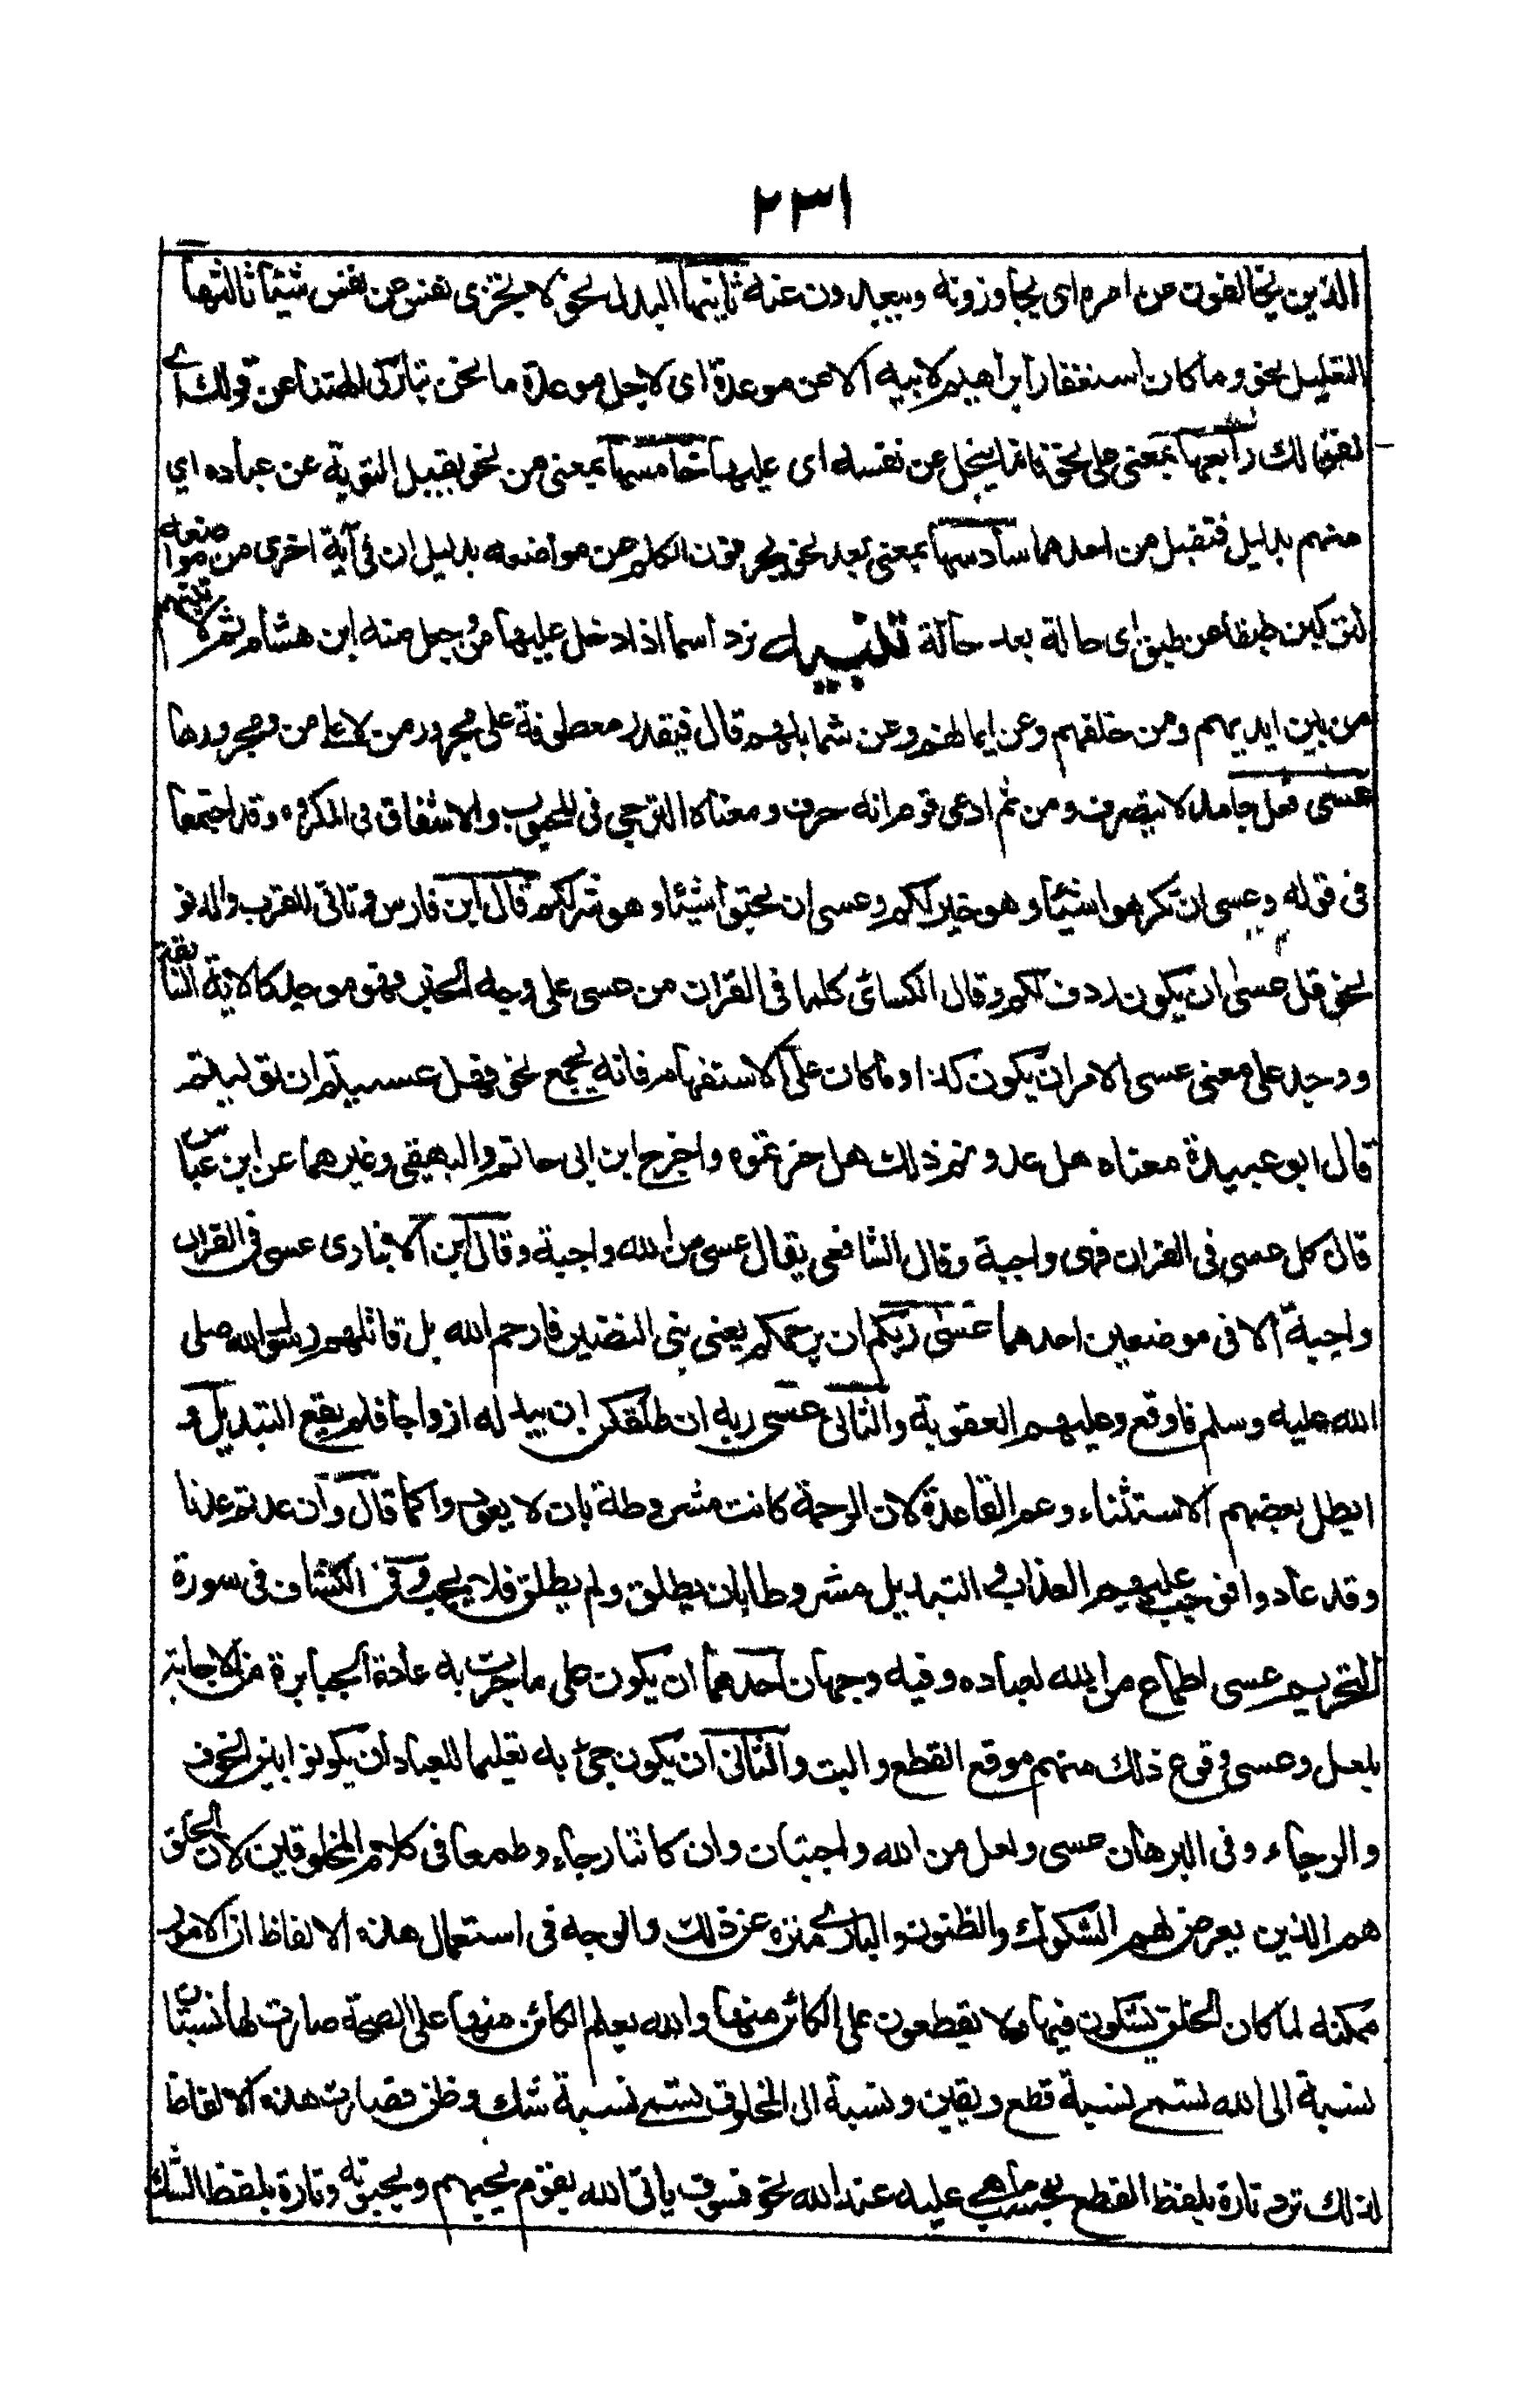 ٢٣١
الذين يخالفون عن امره اى يجاوزونه ويبعدون عنه ثانيها البدل نحو لا يجزى نفس عن نفس شيئا ثالثها
التعليل نحو وما كان استغفار ابراهيم لابيه الا عن موعدة اى لاجل موعدة ما نحن بتاركى الهتنا عن قولك اى
لقولك رابعها بمعنى على نحو فانما يبخل عن نفسه اى عليها خامسها بمعنى من نحو يقبل التوبة عن عباده اى
منهم بدليل فتقبل من احدهما سادسها بمعنى بعد نحو يحرفون الكلم عن مواضعه بدليل ان فى آية اخرى من بعد مواضعه
لتركبن طبقا عن طبق اى حالة بعد حالة تنبيه ترد اسما اذا دخل عليها من وجعل منه ابن هشام ثم لاتينهم
من بين ايديهم ومن خلفهم وعن ايمانهم وعن شمايلهم قال فتقدر معطوفة على مجرور من لا على من ومجرورها
عسى فعل جامد لا يتصرف ومن ثم ادعى قوم انه حرف ومعناه الترجى فى المحبوب والاشفاق فى المكروه وقد اجتمعا
فى قوله وعسى ان تكرهوا شيئا وهو خير لكم وعسى ان تحبوا شيئا وهو شر لكم قال ابن فارس وتاتى للقرب والدنو
نحو قل عسى ان يكون ردف لكم وقال الكسائى كلما فى القران من عسى على وجه الخبر فهو موحد كالاية السابقة
ووحد على معنى عسى الامر ان يكون كذا وما كان على الاستفهام فانه يجمع نحو فهل عسيتم ان توليتم
قال ابو عبيدة معناه هل عدوتم ذلك هل جزتموه واخرج ابن ابى حاتم والبيهقى وغيرهما عن ابن عباس
قال كل عسى فى القران فهى واجبة وقال الشافعى يقال عسى من الله واجبة وقال ابن الانبارى عسى فى القران
واجبة الا فى موضعين احدهما عسى ربكم ان يرحمكم يعنى بنى النضير فما رحمهم الله بل قاتلهم رسول الله صلى
الله عليه وسلم فاوقع عليهم العقوبة والثانى عسى ربه ان طلقكن ان يبدله ازواجا فلم يقع التبديل و
ابطل بعضهم الاستثناء وعم القاعدة لان الرحمة كانت مشروطة بان لا يعودوا كما قال وان عدتم عدنا
وقد عادوا فوجب عليهم العذاب والتبديل مشروطا بان يطلق ولم يطلق فلا يجب وفى الكشاف فى سورة
التحريم عسى اطماع من الله لعباده وفيه وجهان احدهما ان يكون على ما جرت به عادة الجبابرة من الاجابة
بلعل وعسى ووقوع ذلك منهم موقع القطع والبت والثانى ان يكون جئ به تعليما للعباد ان يكونوا بين الخوف
والرجاء وفى البرهان عسى ولعل من الله واجبتان وان كانتا رجاء وطمعا فى كلام المخلوقين لان الخلق
هم الذين يعرض لهم الشكوك والظنون والبارى منزه عن ذلك والوجه فى استعمال هذه الالفاظ ان الامور
ممكنه لما كان الخلق يشكون فيها ولا يقطعون على الكائن منها والله يعلم الكائن منها على الصحة صارت لها نسبتان
نسبة الى الله تسمى نسبة قطع ويقين ونسبة الى المخلوق تسمى نسبة شك وظن فصارت هذه الالفاظ
لذلك ترد تارة بلفظ القطع بحسب ما هى عليه عند الله نحو فسوف ياتى الله بقوم يحبهم ويحبونه وتارة بلفظ الشك